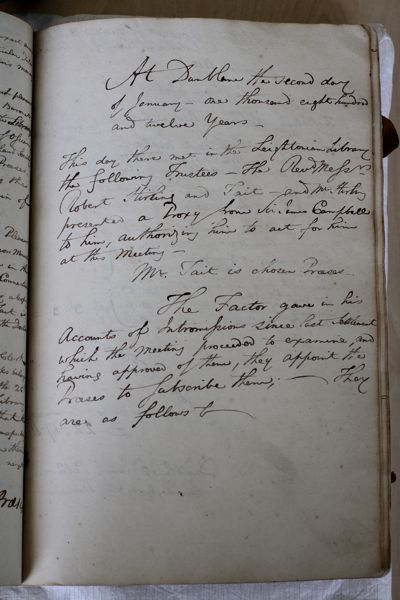 At Dunblane the second day
of January – one thousand eight hundred
and twelve Years –
This day there met in the Leightonian Library
the following Trustees – The Revd Messrs
Robert Stirling and Tait – and Mr. Stirling
presented a Proxy from Sir James Campbell
to him, authorizing him to act for him
at this Meeting –
Mr. Tait is chosen Preses
The Factor gave in his
Accounts of Intromissions since last Settlement
which the Meeting proceeded to examine and
having approved of them, they appoint the
Preses to Subscribe them; — They
are as follows